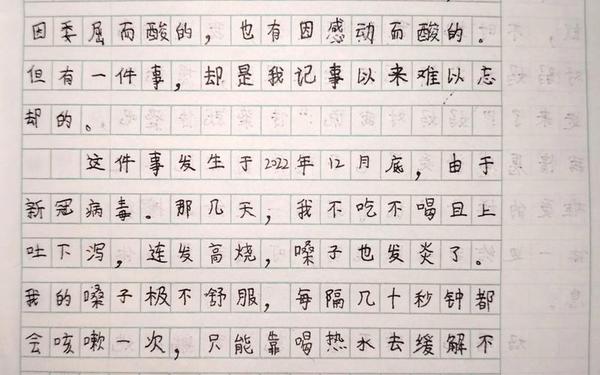 因委屈而酸的，也有因感动而酸的。
但有一件事，却是我记事以来难以忘
却的。
这件事发生于2022年12月底，由于
新冠病毒。那几天，我不吃不喝且上
吐下泻，连发高烧，嗓子也发炎了。
我的嗓子极不舒服，每隔几十秒钟都
会咳嗽一次，只能靠喝热水去缓解不